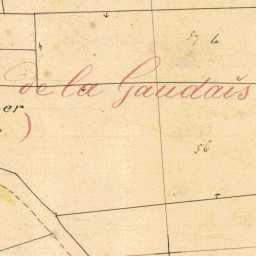 57 b
de la Gaudais
er
)
56